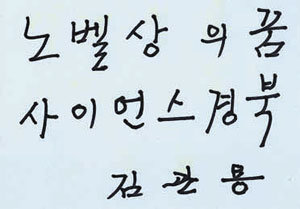 노벨상 의 꿈
사이언스경북
김관용